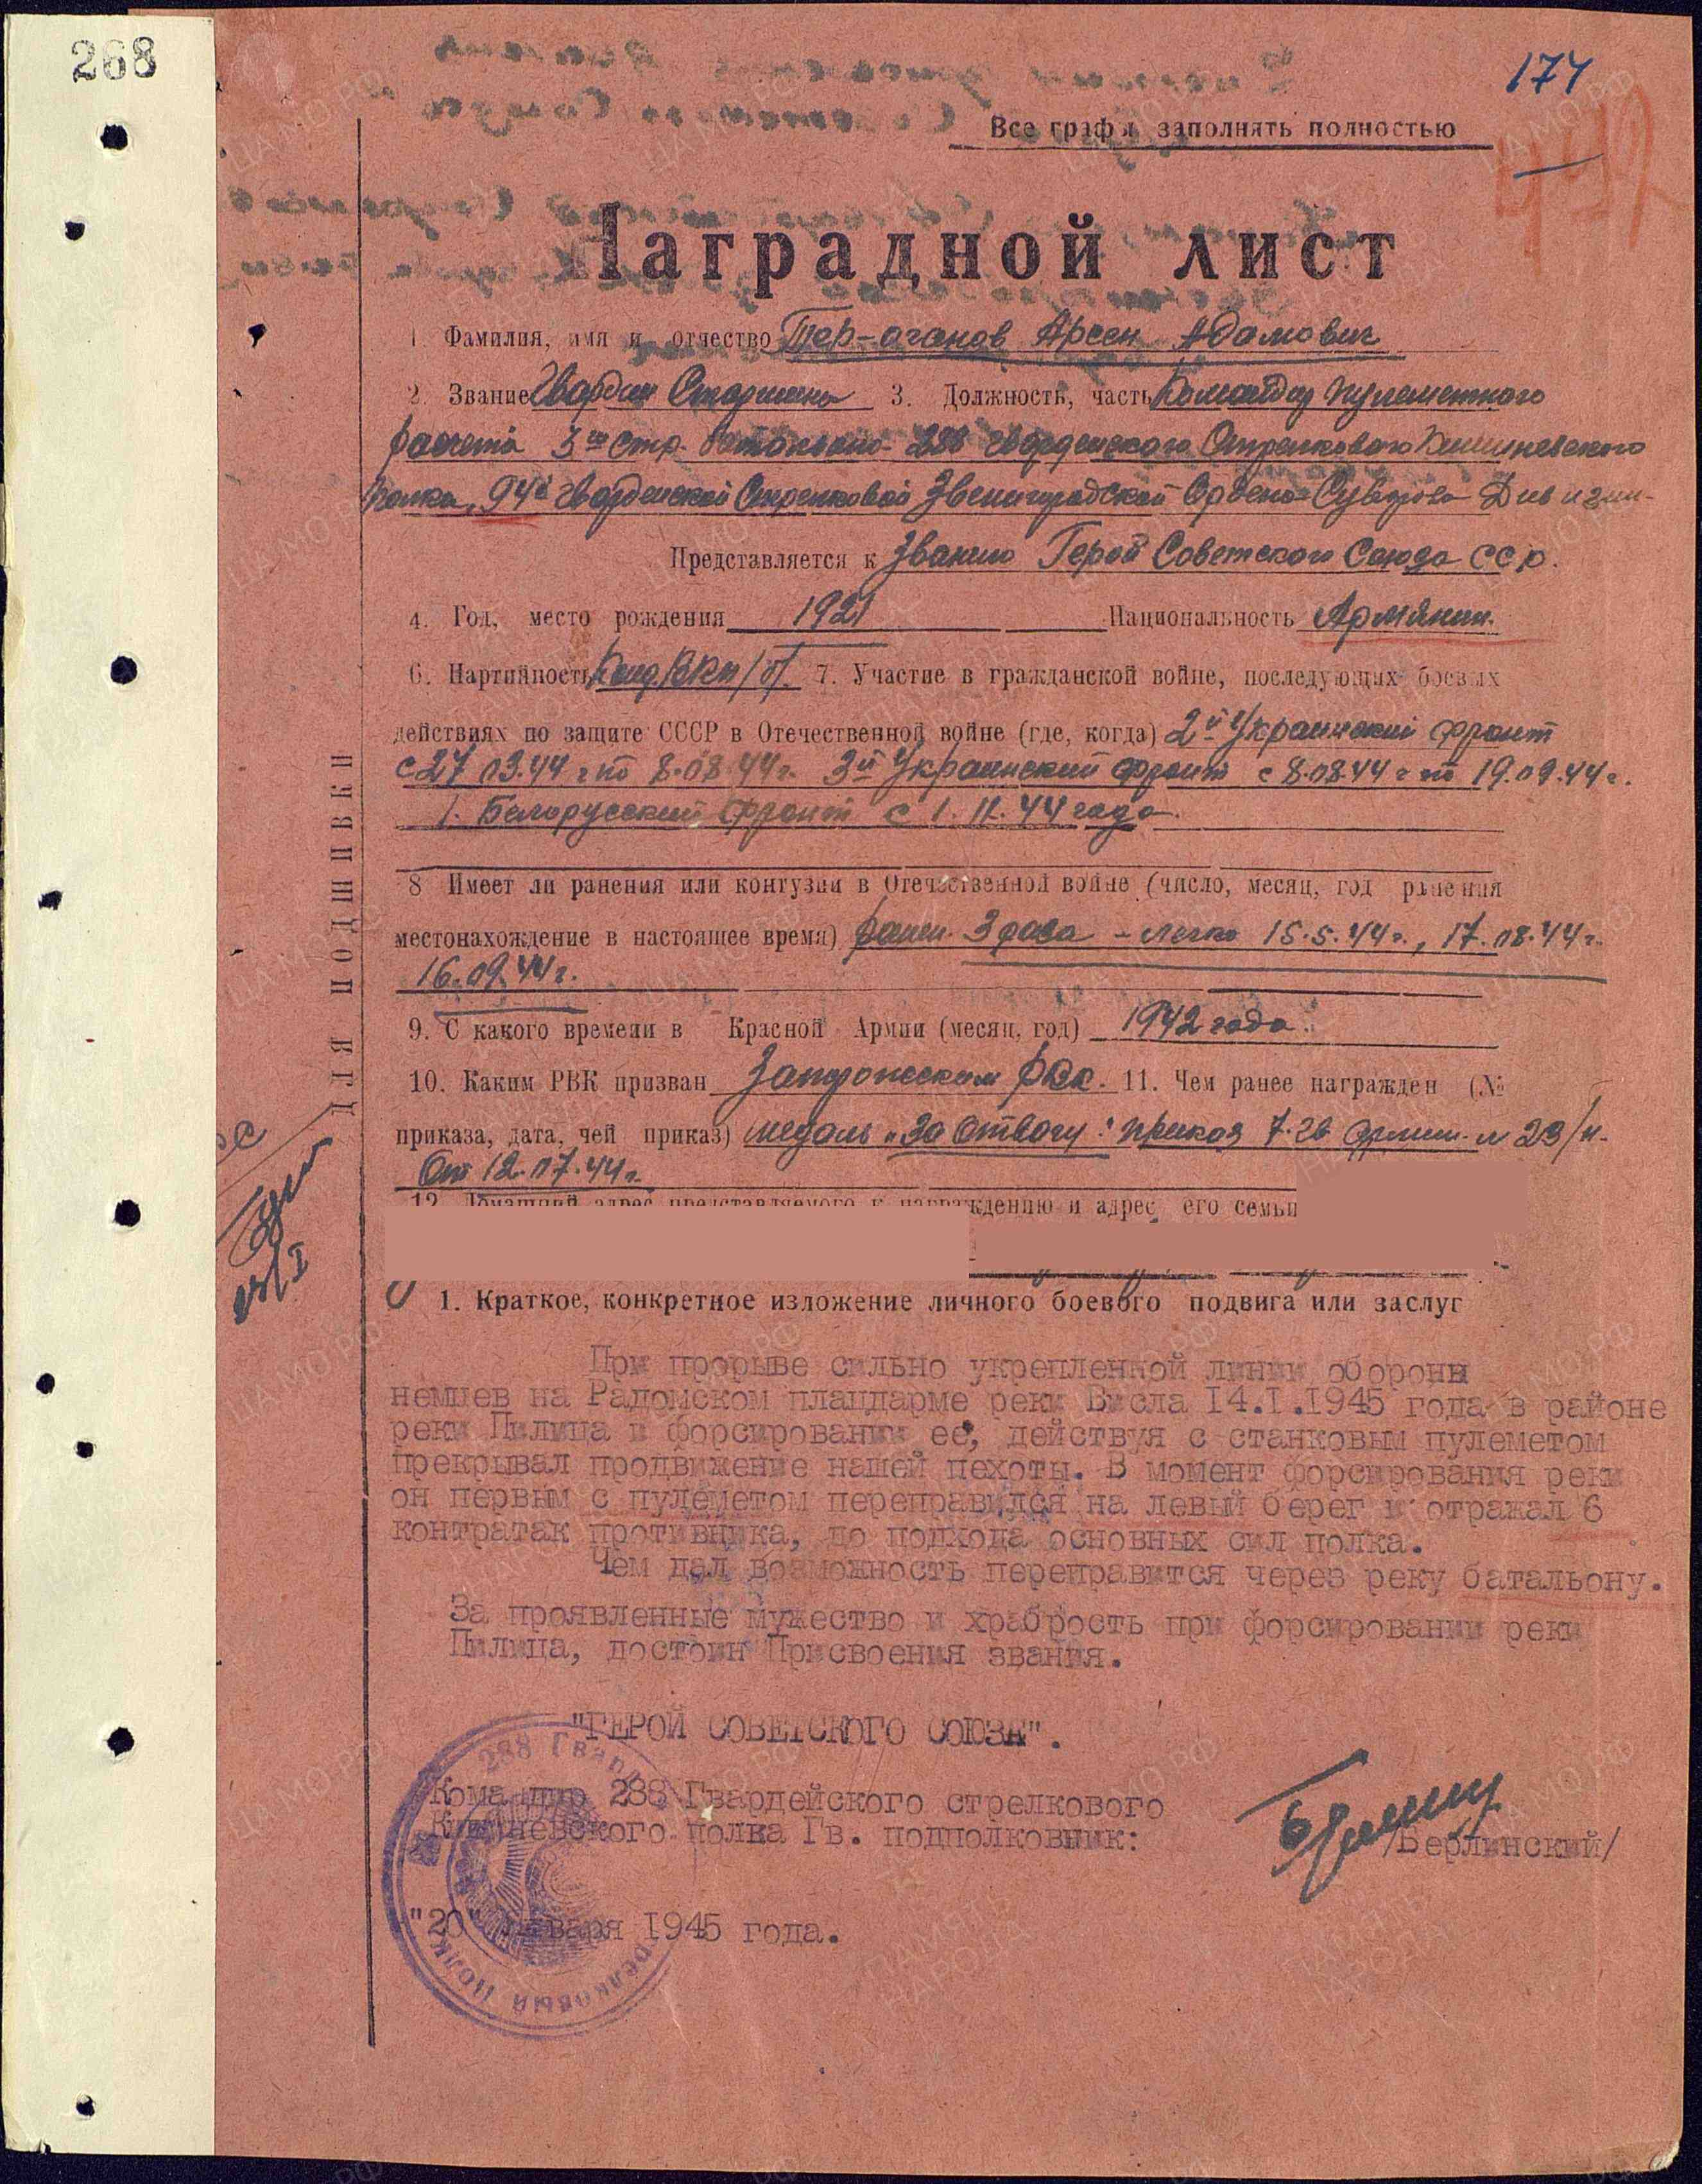 268
174
Все графы заполнять полностью
Наградной лист
1 Фамилия, имя и отчество Тер-аганов Арсен Адамович
2. Звание Гвардии Старшина 3. Должность, часть Командир пулеметного
расчета 3го стр. батальона 288 гвардейского Стрелкового Кишиневского
полка, 94й гвардейской Стрелковой Звенигородской Ордена Суворова Дивизии-
Представляется к Званию Герой Советского Союза ССР.
4. Год, место рождения 1921 Национальность Армянин.
6. Партийность Канд/ВКП/б/. 7. Участие в гражданской войне, последующих боевых
действиях по защите СССР в Отечественной войне (где, когда) 2й Украинский фронт
с 27 03.44 г по 8.08.44г. 3й Украинский фронт с 8.08.44 г по 19.09.44г.
1. Белорусский фронт с 1.11.44 года.
8 Имеет ли ранения или контузии в Отечественной войне (число, месяц, год ранения
местонахождение в настоящее время) ранен 3 раза - легко 15.5.44г., 17.08.44г.
16.09.44г.
9. С какого времени в Красной Армии (месяц, год) 1942 года.
10. Каким РВК призван 11. Чем ранее награжден (№
приказа, дата, чей приказ) медаль „За Отвагу": приказ 7. гв армии. № 23/н.
От 12.07.44г.
12. Домашний адрес представляемого к награждению и адрес его семьи
1. Краткое, конкретное изложение личного боевого подвига или заслуг
При прорыве сильно укрепленной линии обороны
немцев на Радомском плацдарме реки Висла 14.I.1945 года в районе
реки Пилица и форсировании ее, действуя с станковым пулеметом
прекрывал продвижение нашей пехоты. В момент форсирования реки
он первым с пулеметом переправился на левый берег и отражал 6
контратак противника, до подхода основных сил полка.
Чем дал возможность переправится через реку батальону.
За проявленные мужество и храбрость при форсировании реки
Пилица, достоин Присвоения звания.
"ГЕРОЙ СОВЕТСКОГО СОЮЗА".
Командир 288 Гвардейского стрелкового
Кишиневского полка Гв. подполковник:
/Берлинский/
"20" января 1945 года.
ДЛЯ ПОДШИВКИ
288 Гвард
стрелковый полк